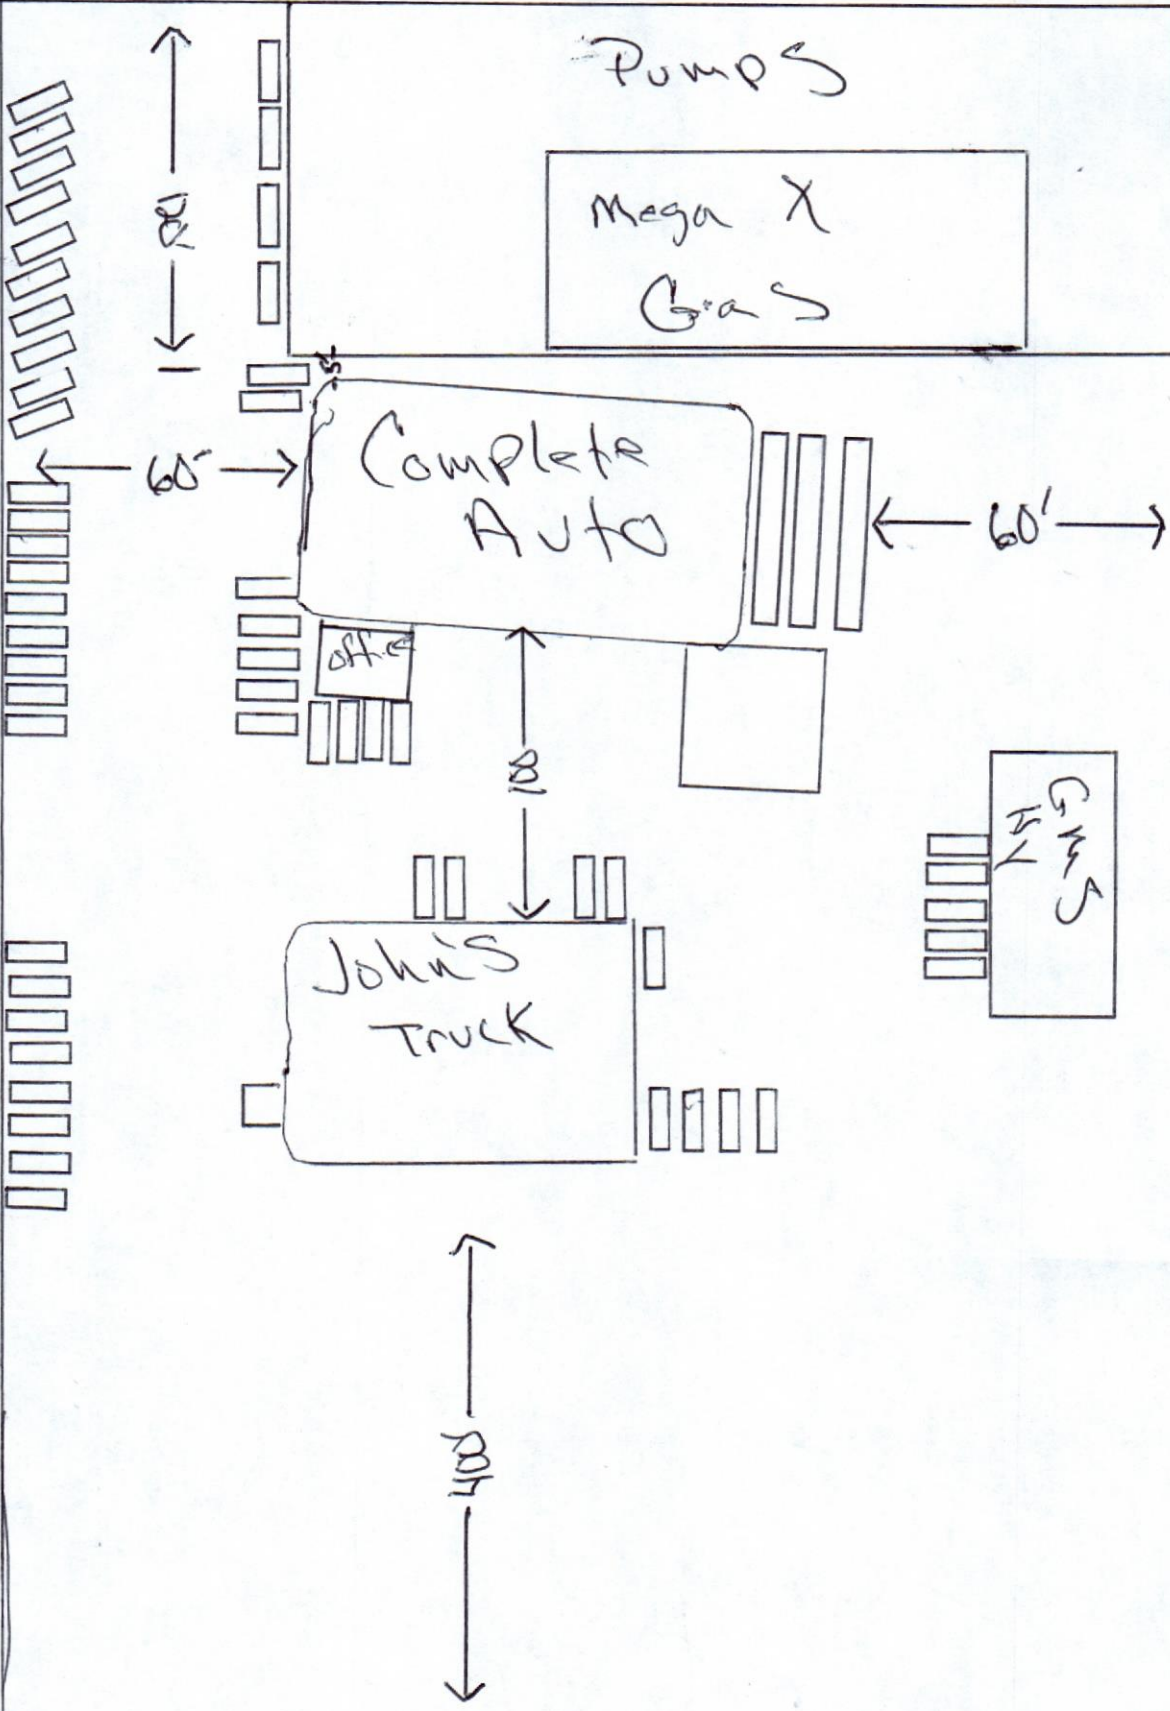 Pumps
Mega X
Gas
5'
Complete
Auto
60'
60'
office
John's
Truck
400'